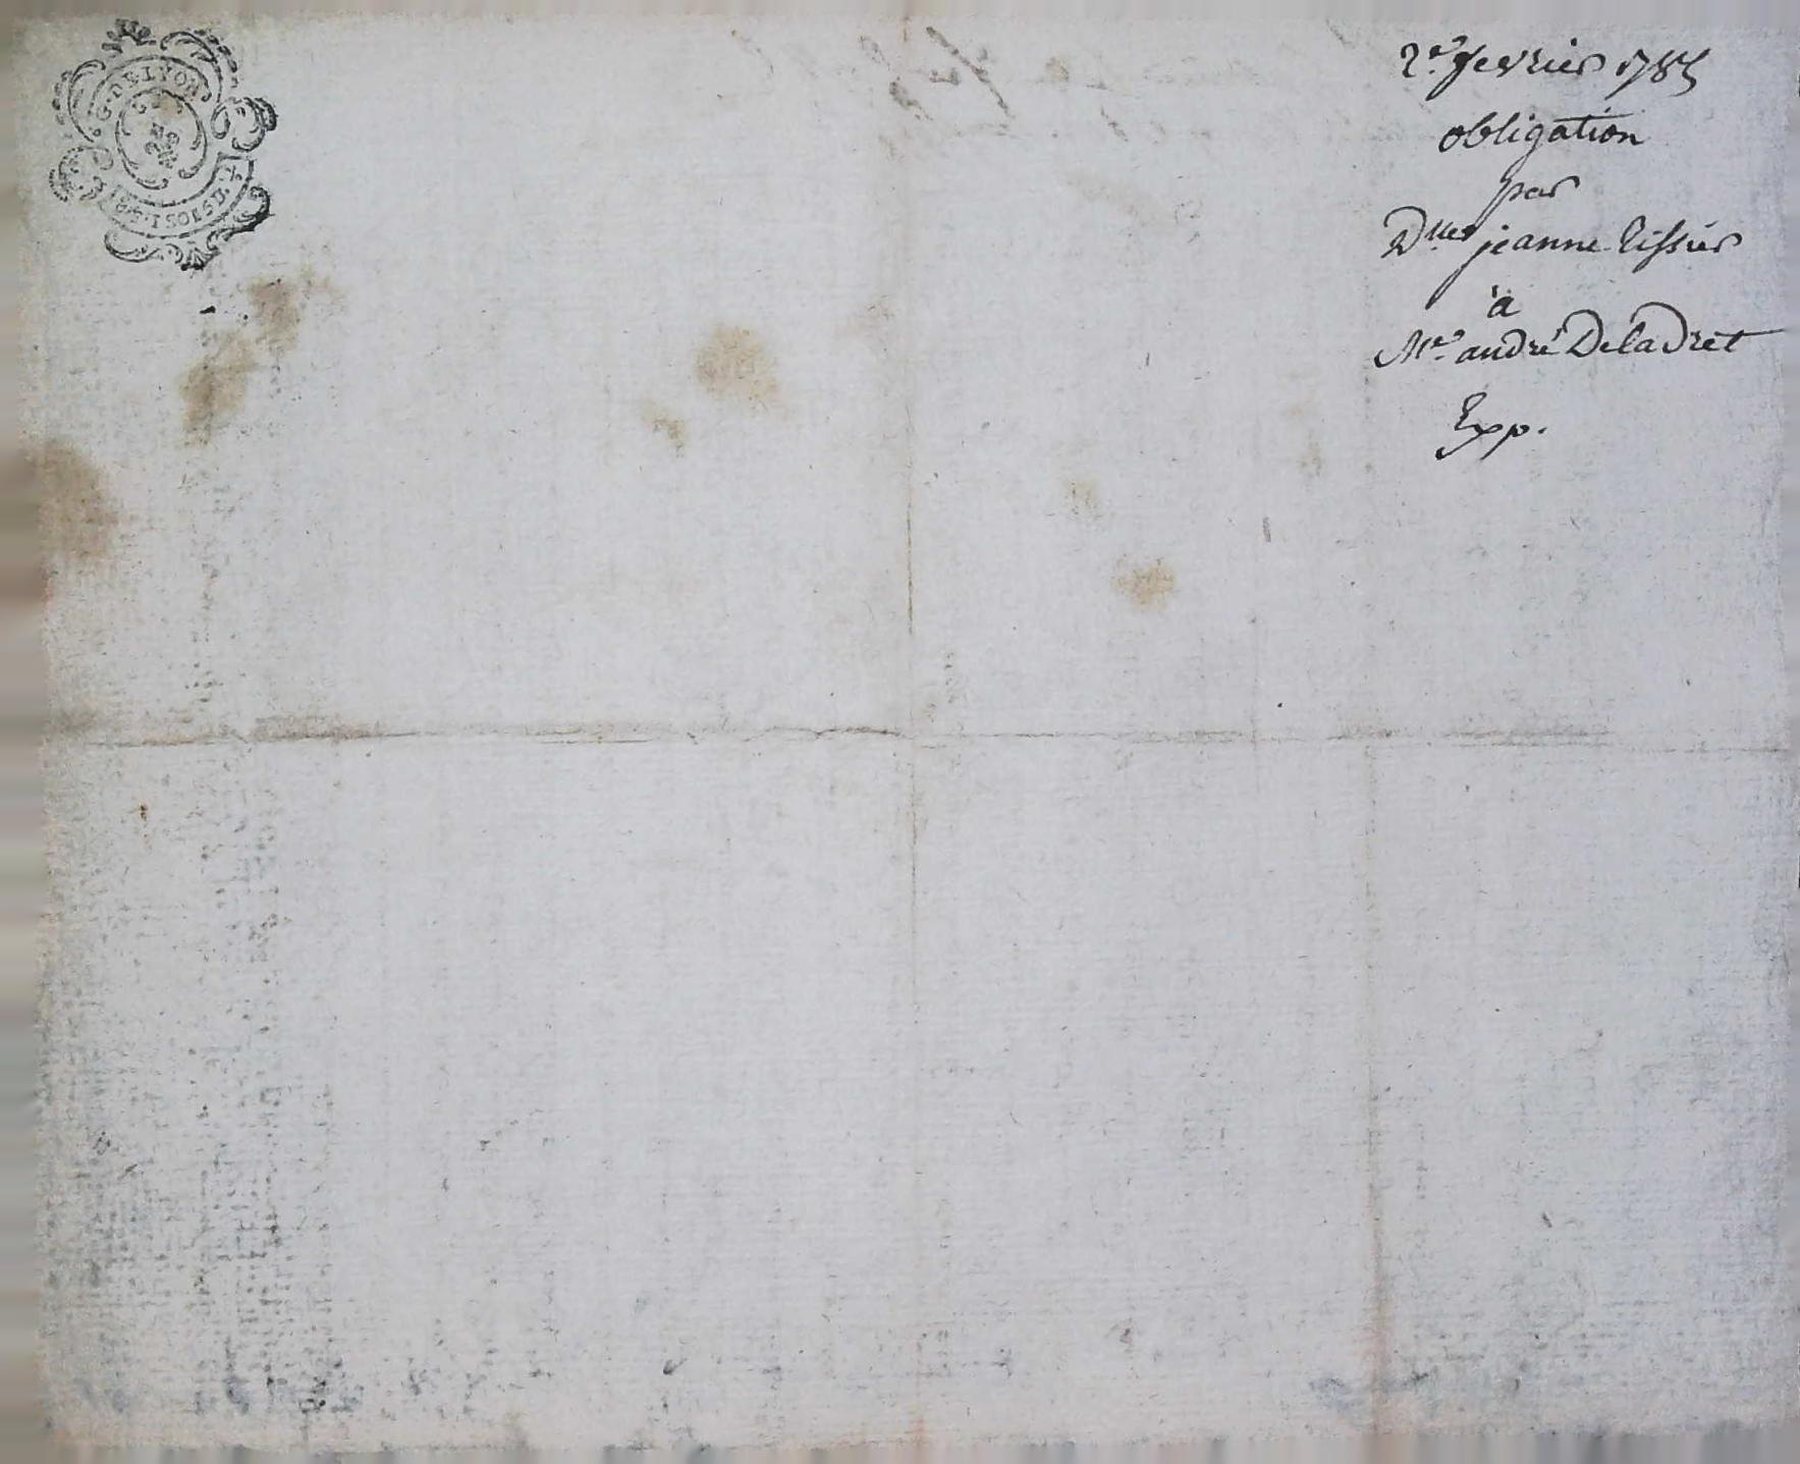 G. DE LYON
2.e fevrier 1785
obligation
par
Dlles jeanne tissier
à
Me. andré Deladret
Exp.